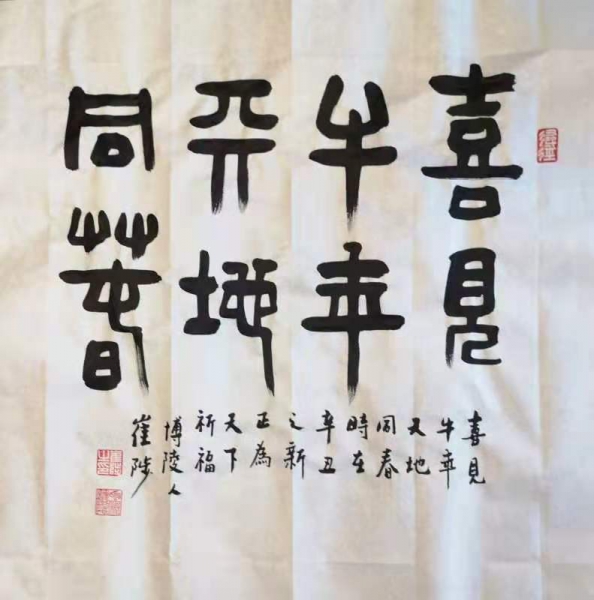 喜見
牛年
天地
同春
喜見
牛年
天地
同春
時在
辛丑
之新
正為
天下
祈福
博陵人
崔陟